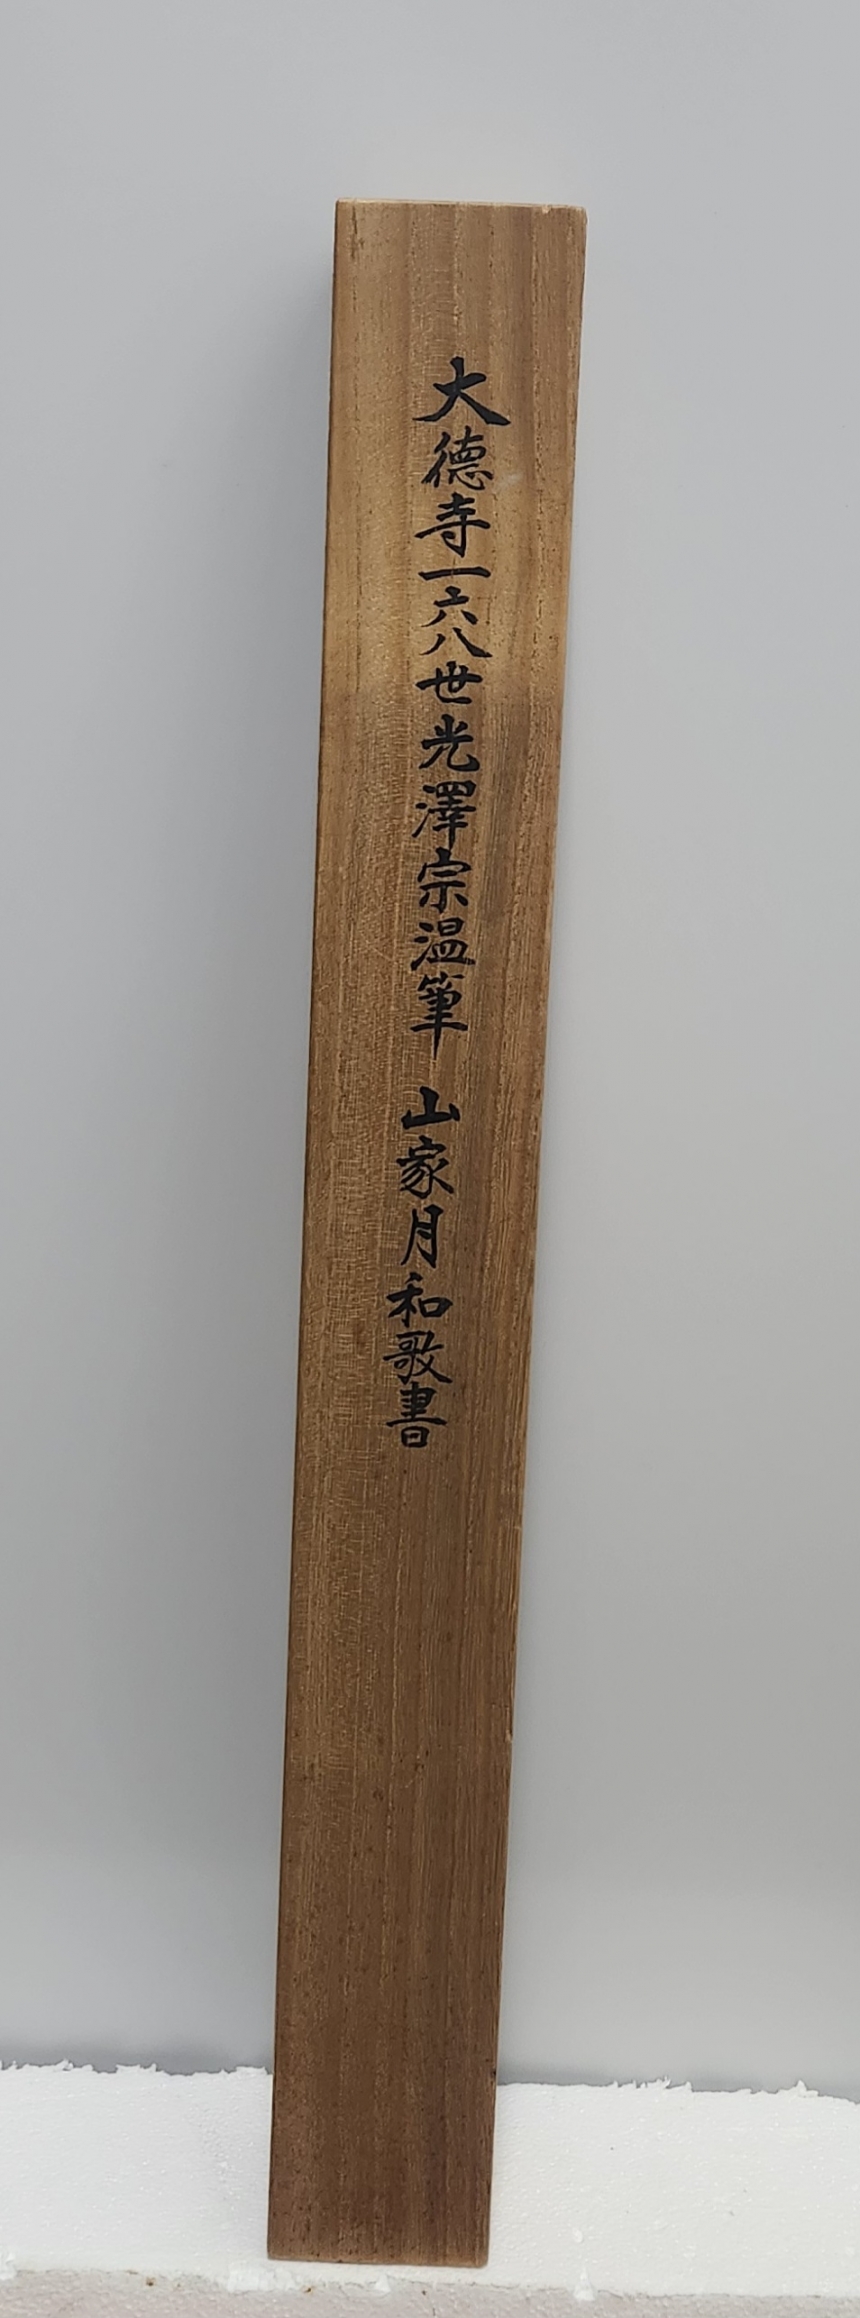 大德寺一六八世光澤宗温筆 山家月和歌書